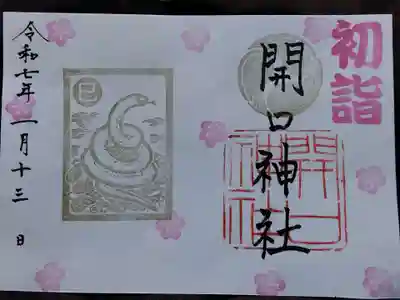 初詣
開口神社
開口
神社
巳
令和七年一月十三日